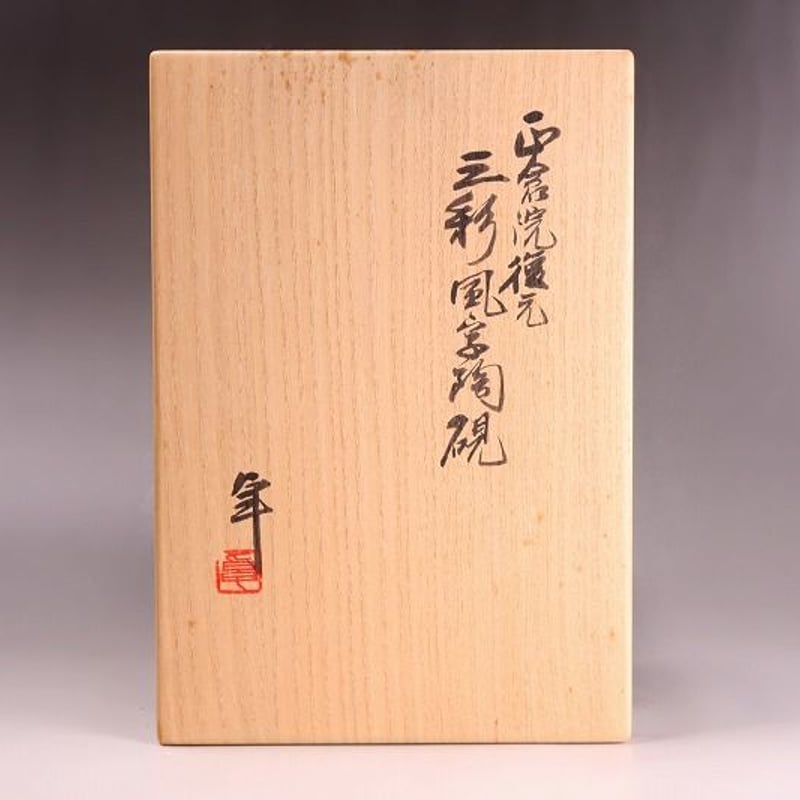 正倉院復元
三彩風字陶硯
年